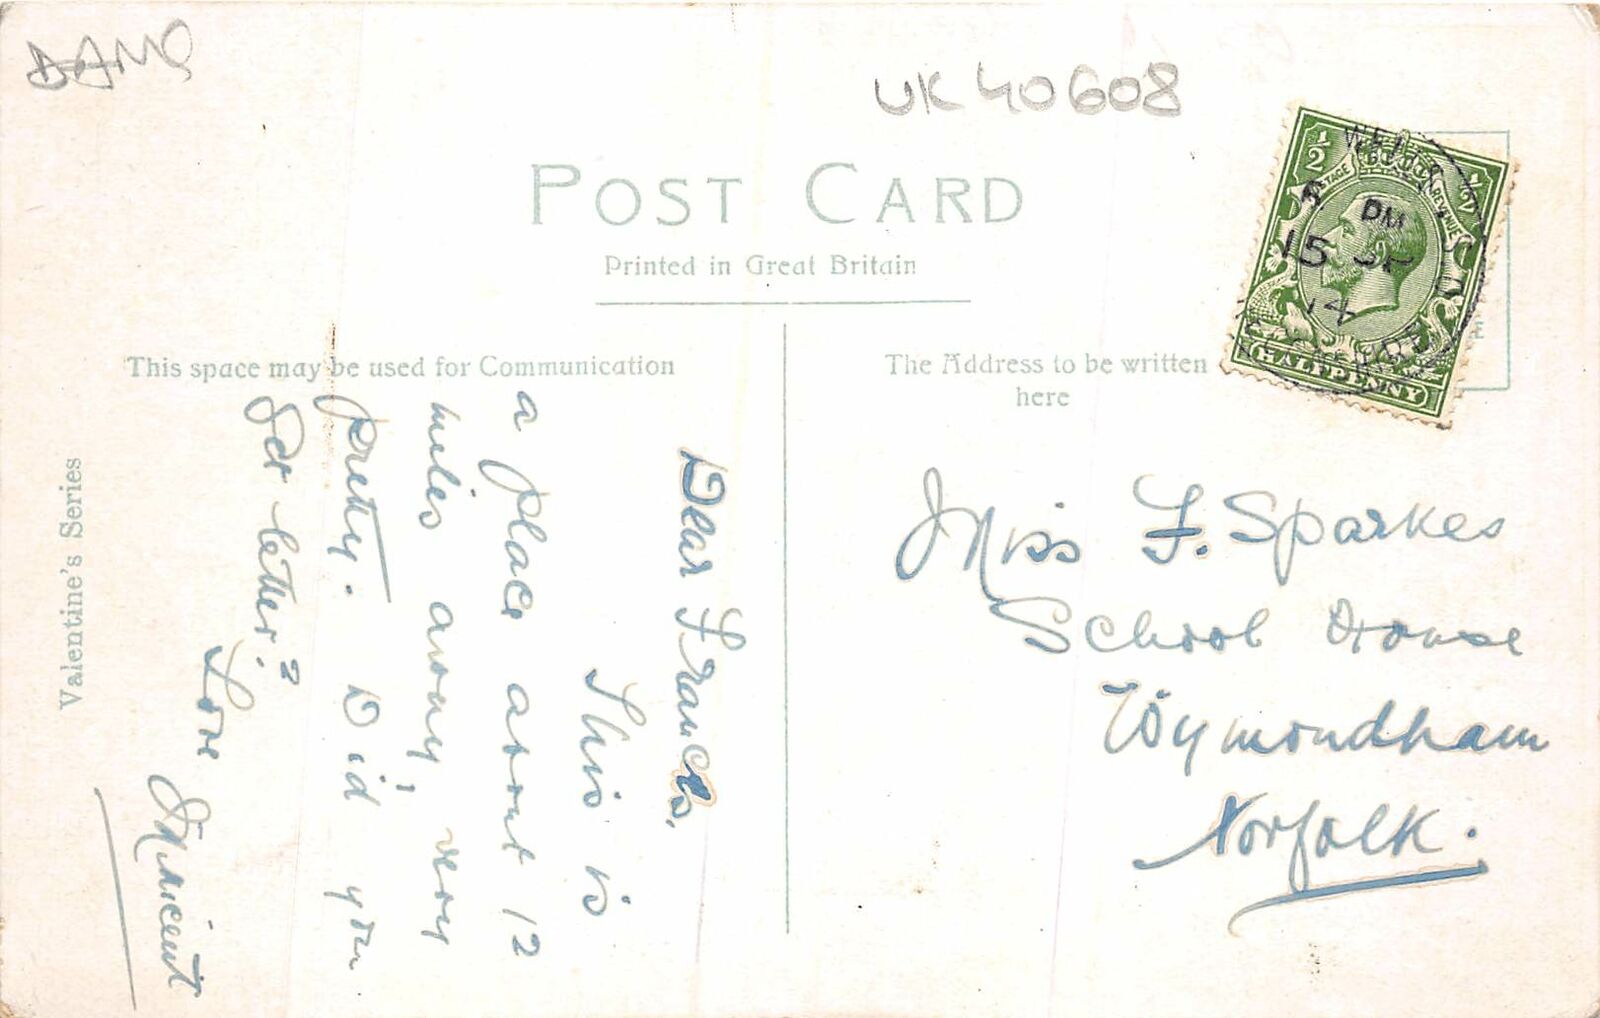 DAMG
UK 40608
POST CARD
Printed in Great Britain
This space may be used for Communication
The Address to be written
here
Valentine's Series
Dear Francis,
This is
a place about 12
miles away, very
pretty. Did you
get letter?
Love
Millicent
Miss F. Sparkes
School House
Wymondham
Norfolk.
½ ½
POSTAGE REVENUE
HALFPENNY
PM
15 SP
14